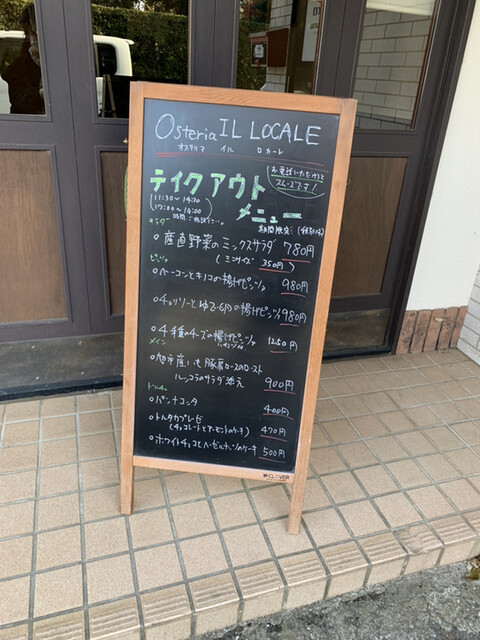 Osteria IL LOCALE
オステリア イル ロカーレ
テイクアウト
メニュー
お電話いただけると
スムーズです!
11:30〜14:30
17:00〜19:00
サラダ
産直野菜のミックスサラダ 780円
(ミニサイズ 350円)
ピッツァ
ベーコンとキノコの揚げピッツァ 980円
揚げピッツァ 980円
4種のチーズの揚げピッツァ 1250円
メイン
旭市産いも豚肩ロースのロースト
ルッコラのサラダ添え 900円
ドルチェ
パンナコッタ 400円
トルタカプレーゼ 470円
(チョコレートとアーモンドのケーキ)
ホワイトチョコとヘーゼルナッツのケーキ 500円
CLOVER